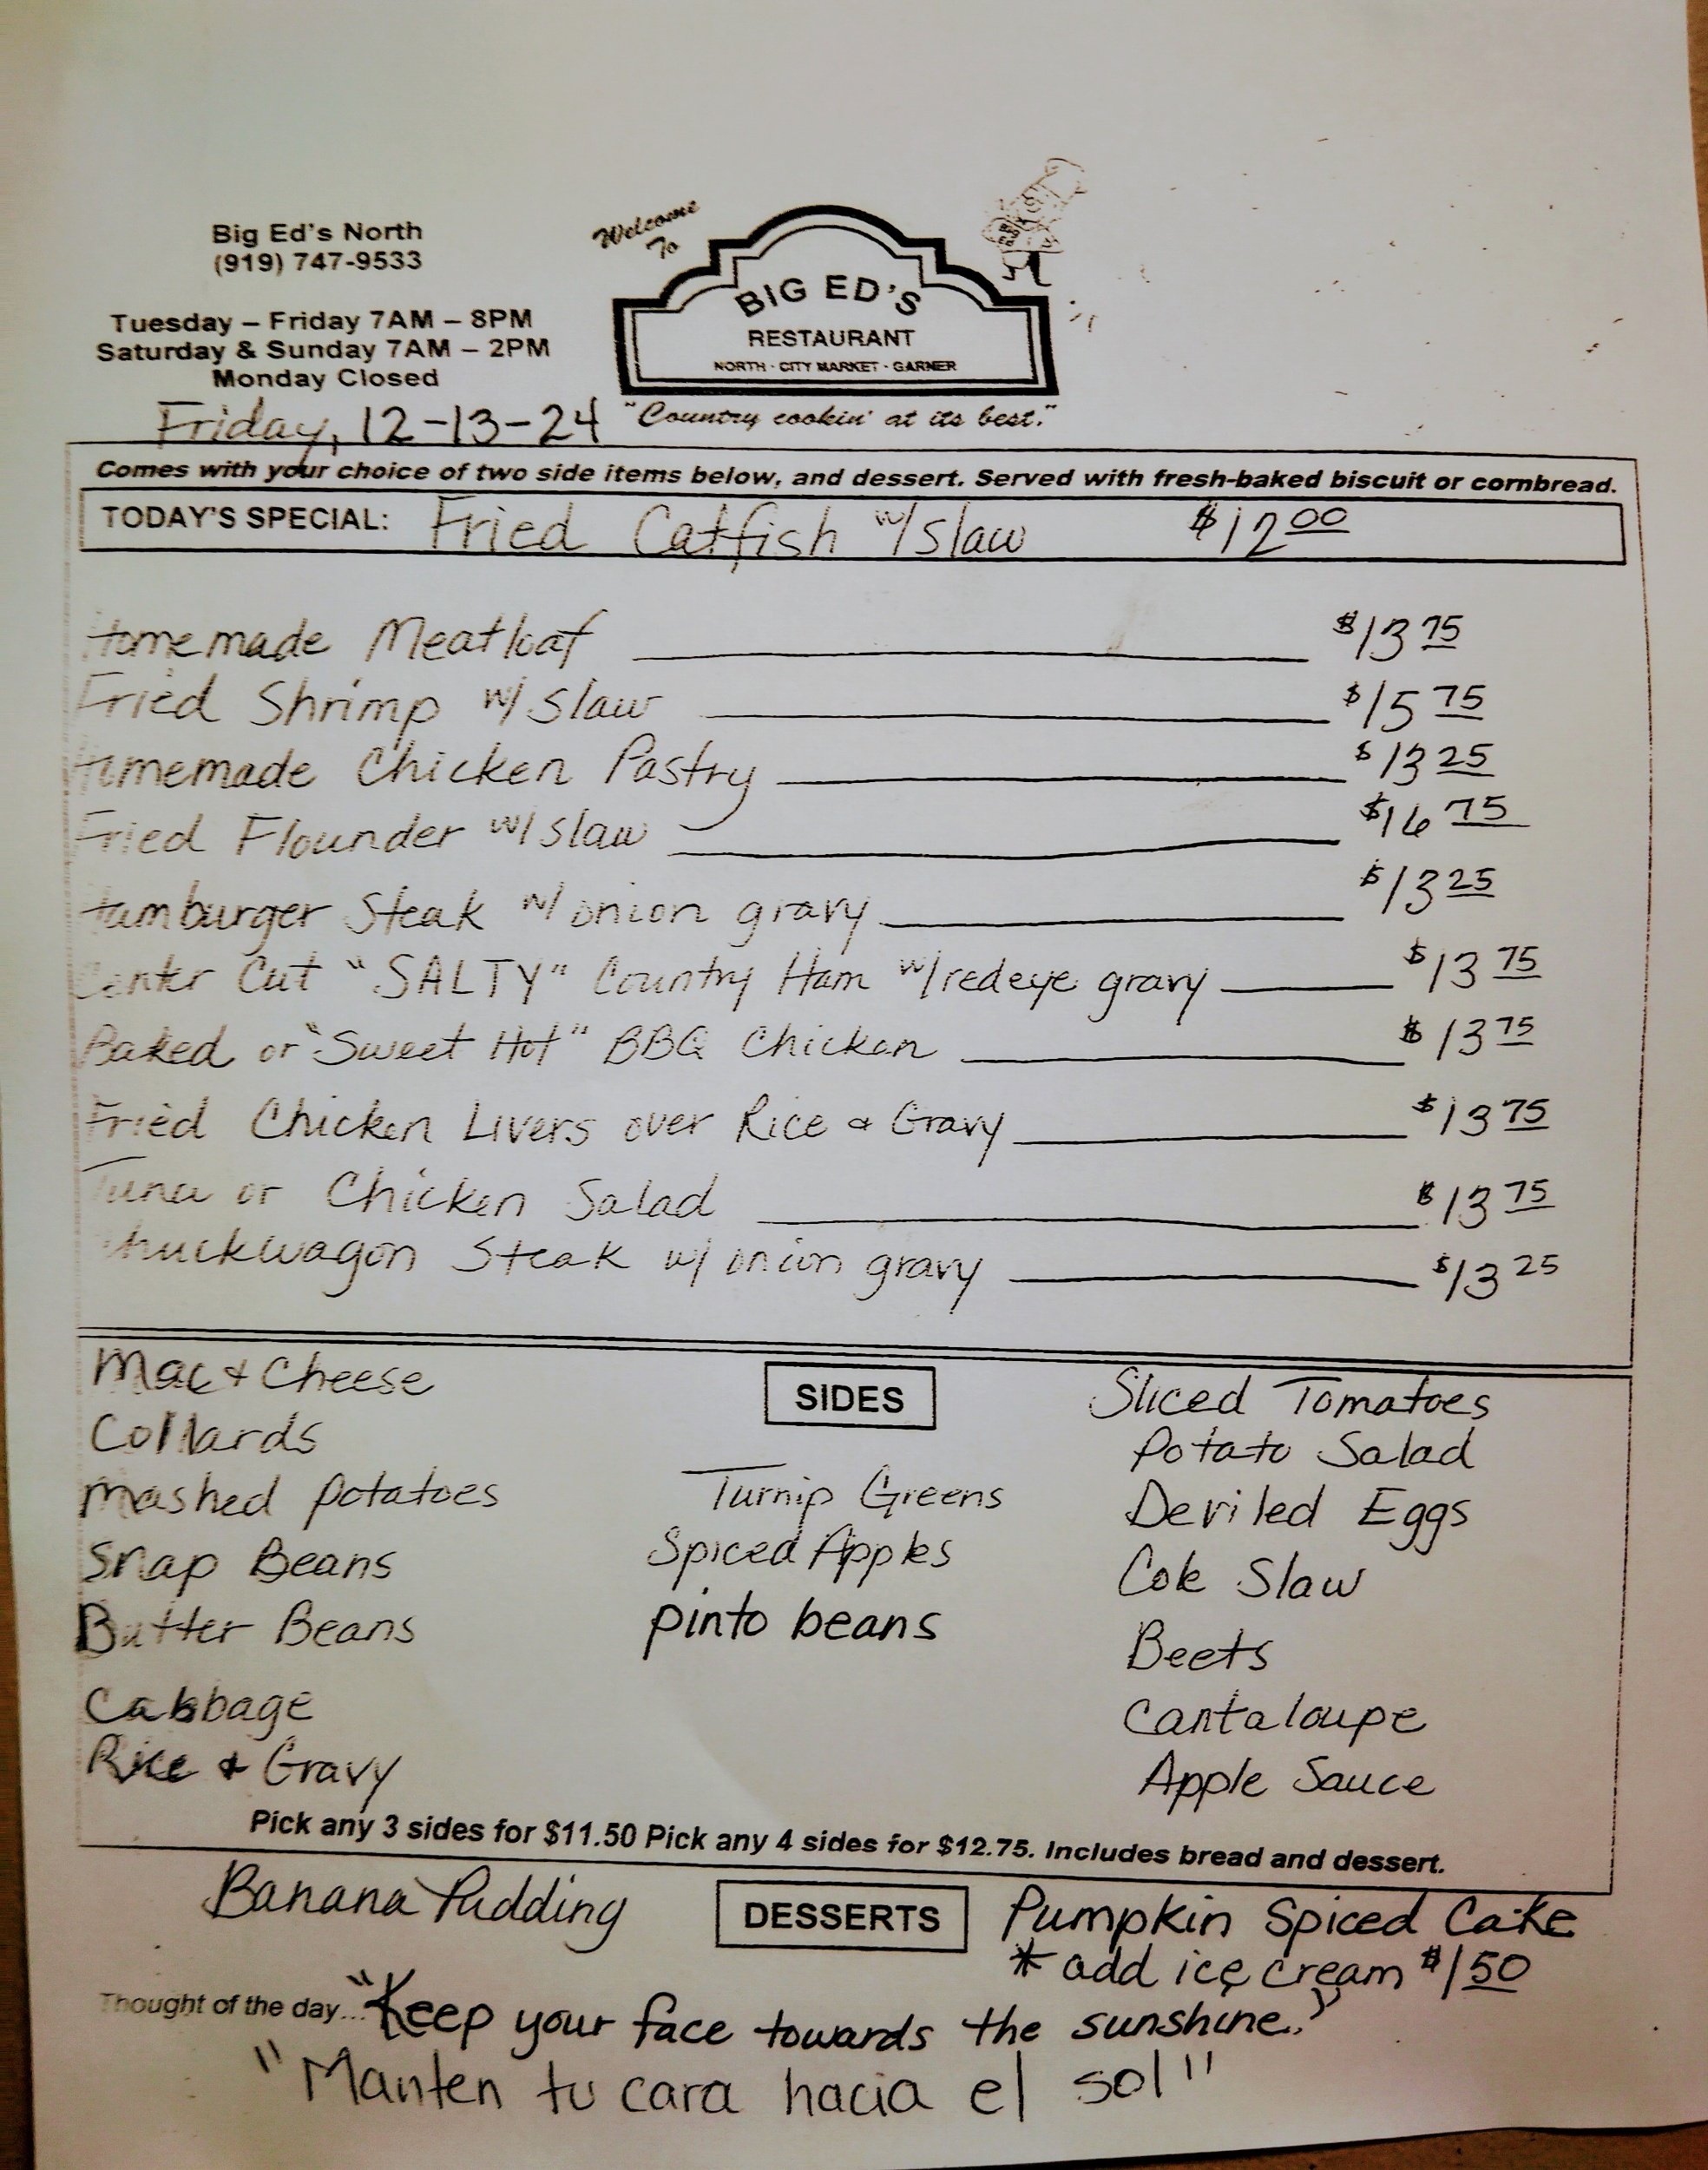 Big Ed's North
(919) 747-9533
Tuesday – Friday 7AM – 8PM
Saturday & Sunday 7AM – 2PM
Monday Closed
Friday, 12-13-24
Welcome
To
BIG ED'S
RESTAURANT
NORTH - CITY MARKET - GARNER
"Country cookin' at its best."
Comes with your choice of two side items below, and dessert. Served with fresh-baked biscuit or cornbread.
TODAY'S SPECIAL: Fried Catfish w/ slaw $12.00
Homemade Meatloaf $13.75
Fried Shrimp w/ slaw $15.75
Homemade Chicken Pastry $13.25
Fried Flounder w/ slaw $16.75
Hamburger Steak w/ onion gravy $13.25
Center Cut "SALTY" Country Ham w/ redeye gravy $13.75
Baked or "Sweet Hot" BBQ Chicken $13.75
Fried Chicken Livers over Rice & Gravy $13.75
Tuna or Chicken Salad $13.75
Chuckwagon Steak w/ onion gravy $13.25
SIDES
Mac & Cheese
Collards
Mashed potatoes
Snap Beans
Butter Beans
Cabbage
Rice & Gravy
Turnip Greens
Spiced Apples
pinto beans
Sliced Tomatoes
Potato Salad
Deviled Eggs
Cole Slaw
Beets
Cantaloupe
Apple Sauce
Pick any 3 sides for $11.50 Pick any 4 sides for $12.75. Includes bread and dessert.
DESSERTS
Banana Pudding
Pumpkin Spiced Cake
* add ice cream $1.50
Thought of the day... "Keep your face towards the sunshine."
"Manten tu cara hacia el sol"